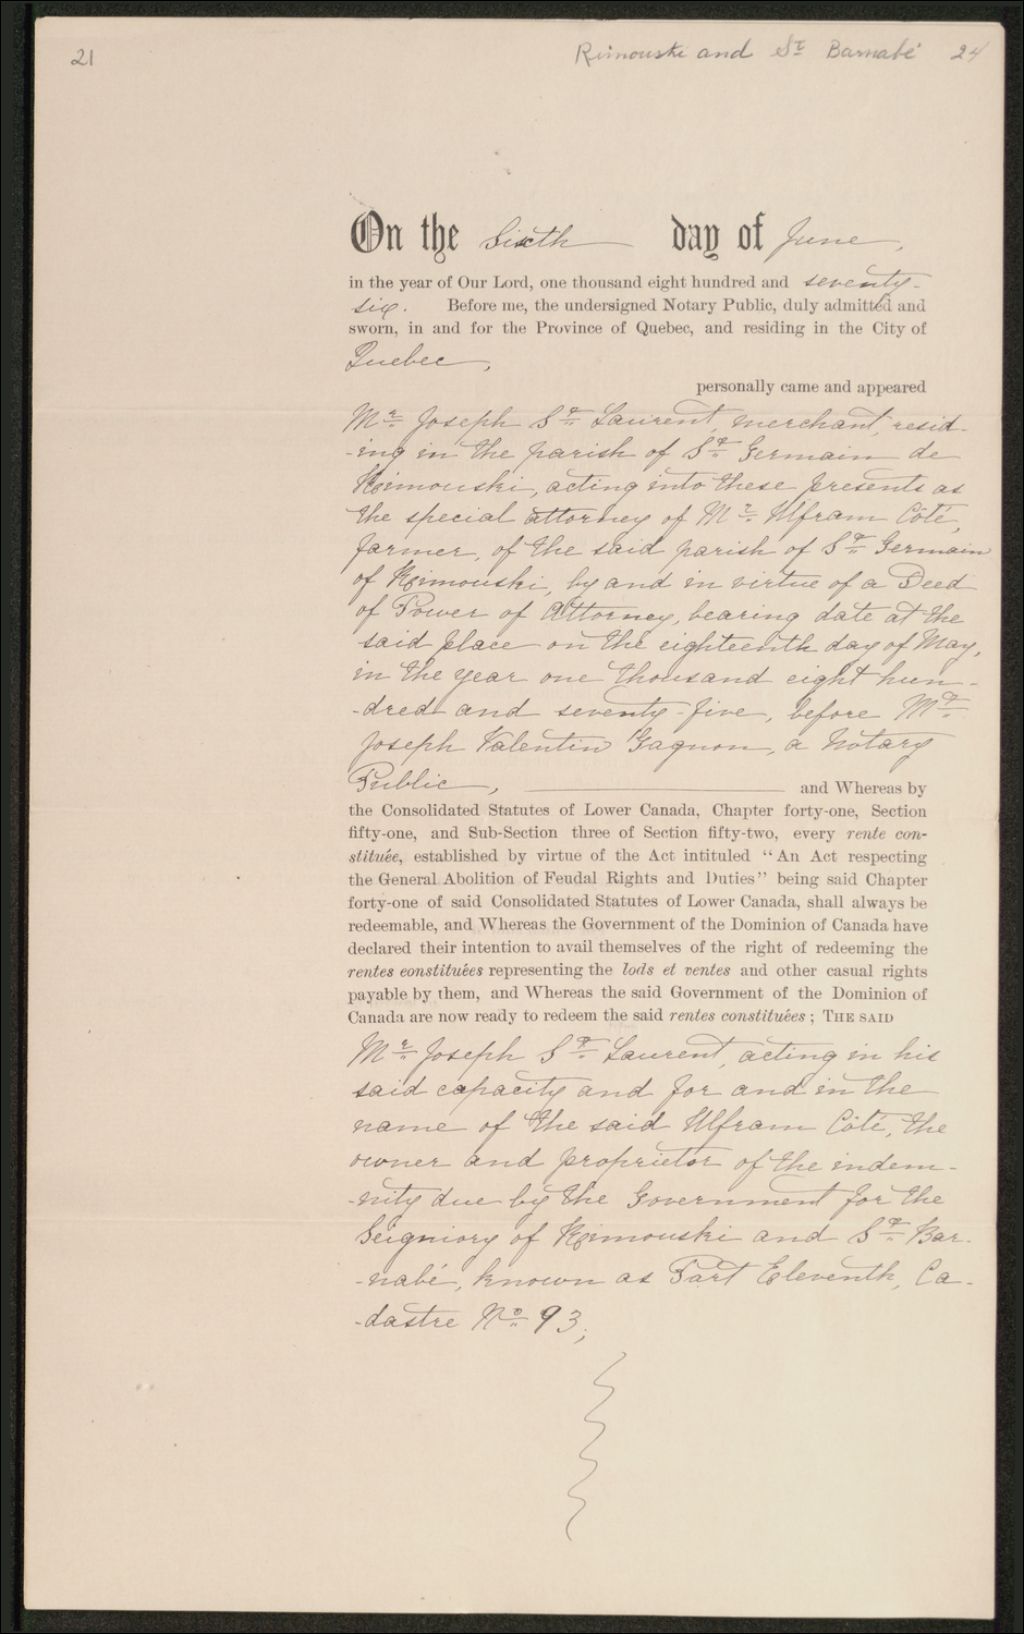 21
Rimouski and St Barnabé 24
On the Sixth day of June,
in the year of Our Lord, one thousand eight hundred and seventy-
six. Before me, the undersigned Notary Public, duly admitted and
sworn, in and for the Province of Quebec, and residing in the City of
Quebec,
personally came and appeared
Mr. Joseph St. Laurent, merchant, resid-
-ing in the parish of St. Germain de
Rimouski, acting into these presents as
the special attorney of Mr. Ulfram Côté,
farmer, of the said parish of St. Germain
of Rimouski, by and in virtue of a Deed
of Power of Attorney, bearing date at the
said place on the eighteenth day of May,
in the year one thousand eight hun-
-dred and seventy-five, before Mtre.
Joseph Valentin Gagnon, a Notary
Public, and Whereas by
the Consolidated Statutes of Lower Canada, Chapter forty-one, Section
fifty-one, and Sub-Section three of Section fifty-two, every rente con-
stituée, established by virtue of the Act intituled "An Act respecting
the General Abolition of Feudal Rights and Duties" being said Chapter
forty-one of said Consolidated Statutes of Lower Canada, shall always be
redeemable, and Whereas the Government of the Dominion of Canada have
declared their intention to avail themselves of the right of redeeming the
rentes constituées representing the lods et ventes and other casual rights
payable by them, and Whereas the said Government of the Dominion of
Canada are now ready to redeem the said rentes constituées; THE SAID
Mr. Joseph St. Laurent, acting in his
said capacity and for and in the
name of the said Ulfram Côté, the
owner and proprietor of the indem-
-nity due by the Government for the
Seigniory of Rimouski and St. Bar-
-nabé, known as Part Eleventh, Ca-
-dastre No. 93;